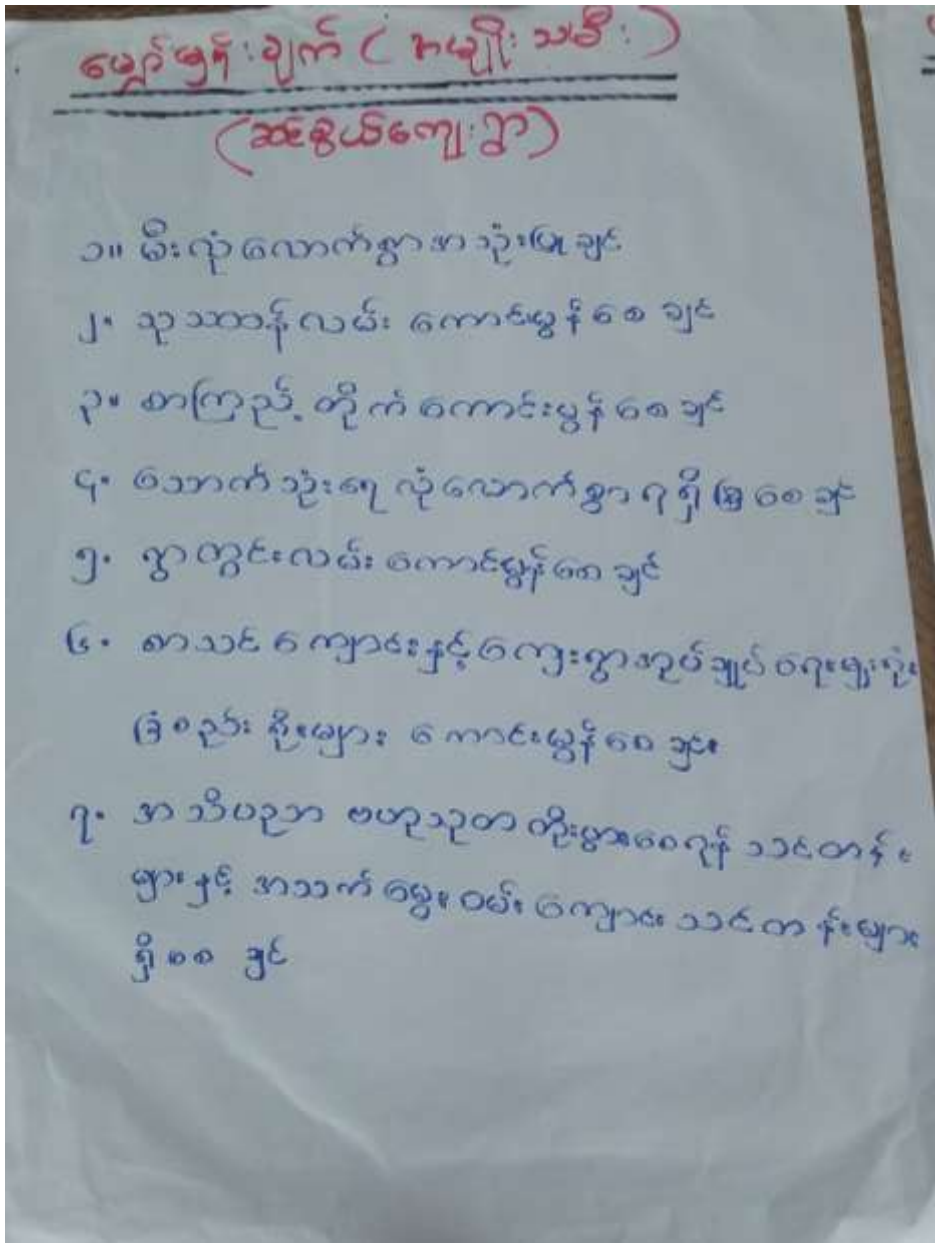 မျှော်မှန်းချက် ( အမျိုးသမီး )
(ဆင်စွယ်ကျေးရွာ)
၁။ မီးလုံလောက်စွာအသုံးပြုချင်
၂။ သုသာန်လမ်း ကောင်မွန်စေချင်
၃။ စာကြည့်တိုက်ကောင်းမွန်စေချင်
၄။ သောက်သုံးရေလုံလောက်စွာရရှိစေချင်
၅။ ရွာတွင်းလမ်းကောင်မွန်စေချင်
၆။ စာသင်ကျောင်းနှင့်ကျေးရွာအုပ်ချုပ်ရေးမှူးရုံး
ခြံစည်းရိုးများ ကောင်းမွန်စေချင်း
၇။ အသိပညာ ဗဟုသုတတိုးပွားစေရန် သင်တန်း
များနှင့် အသက်မွေးဝမ်းကျောင်းသင်တန်းများ
ရှိစေချင်